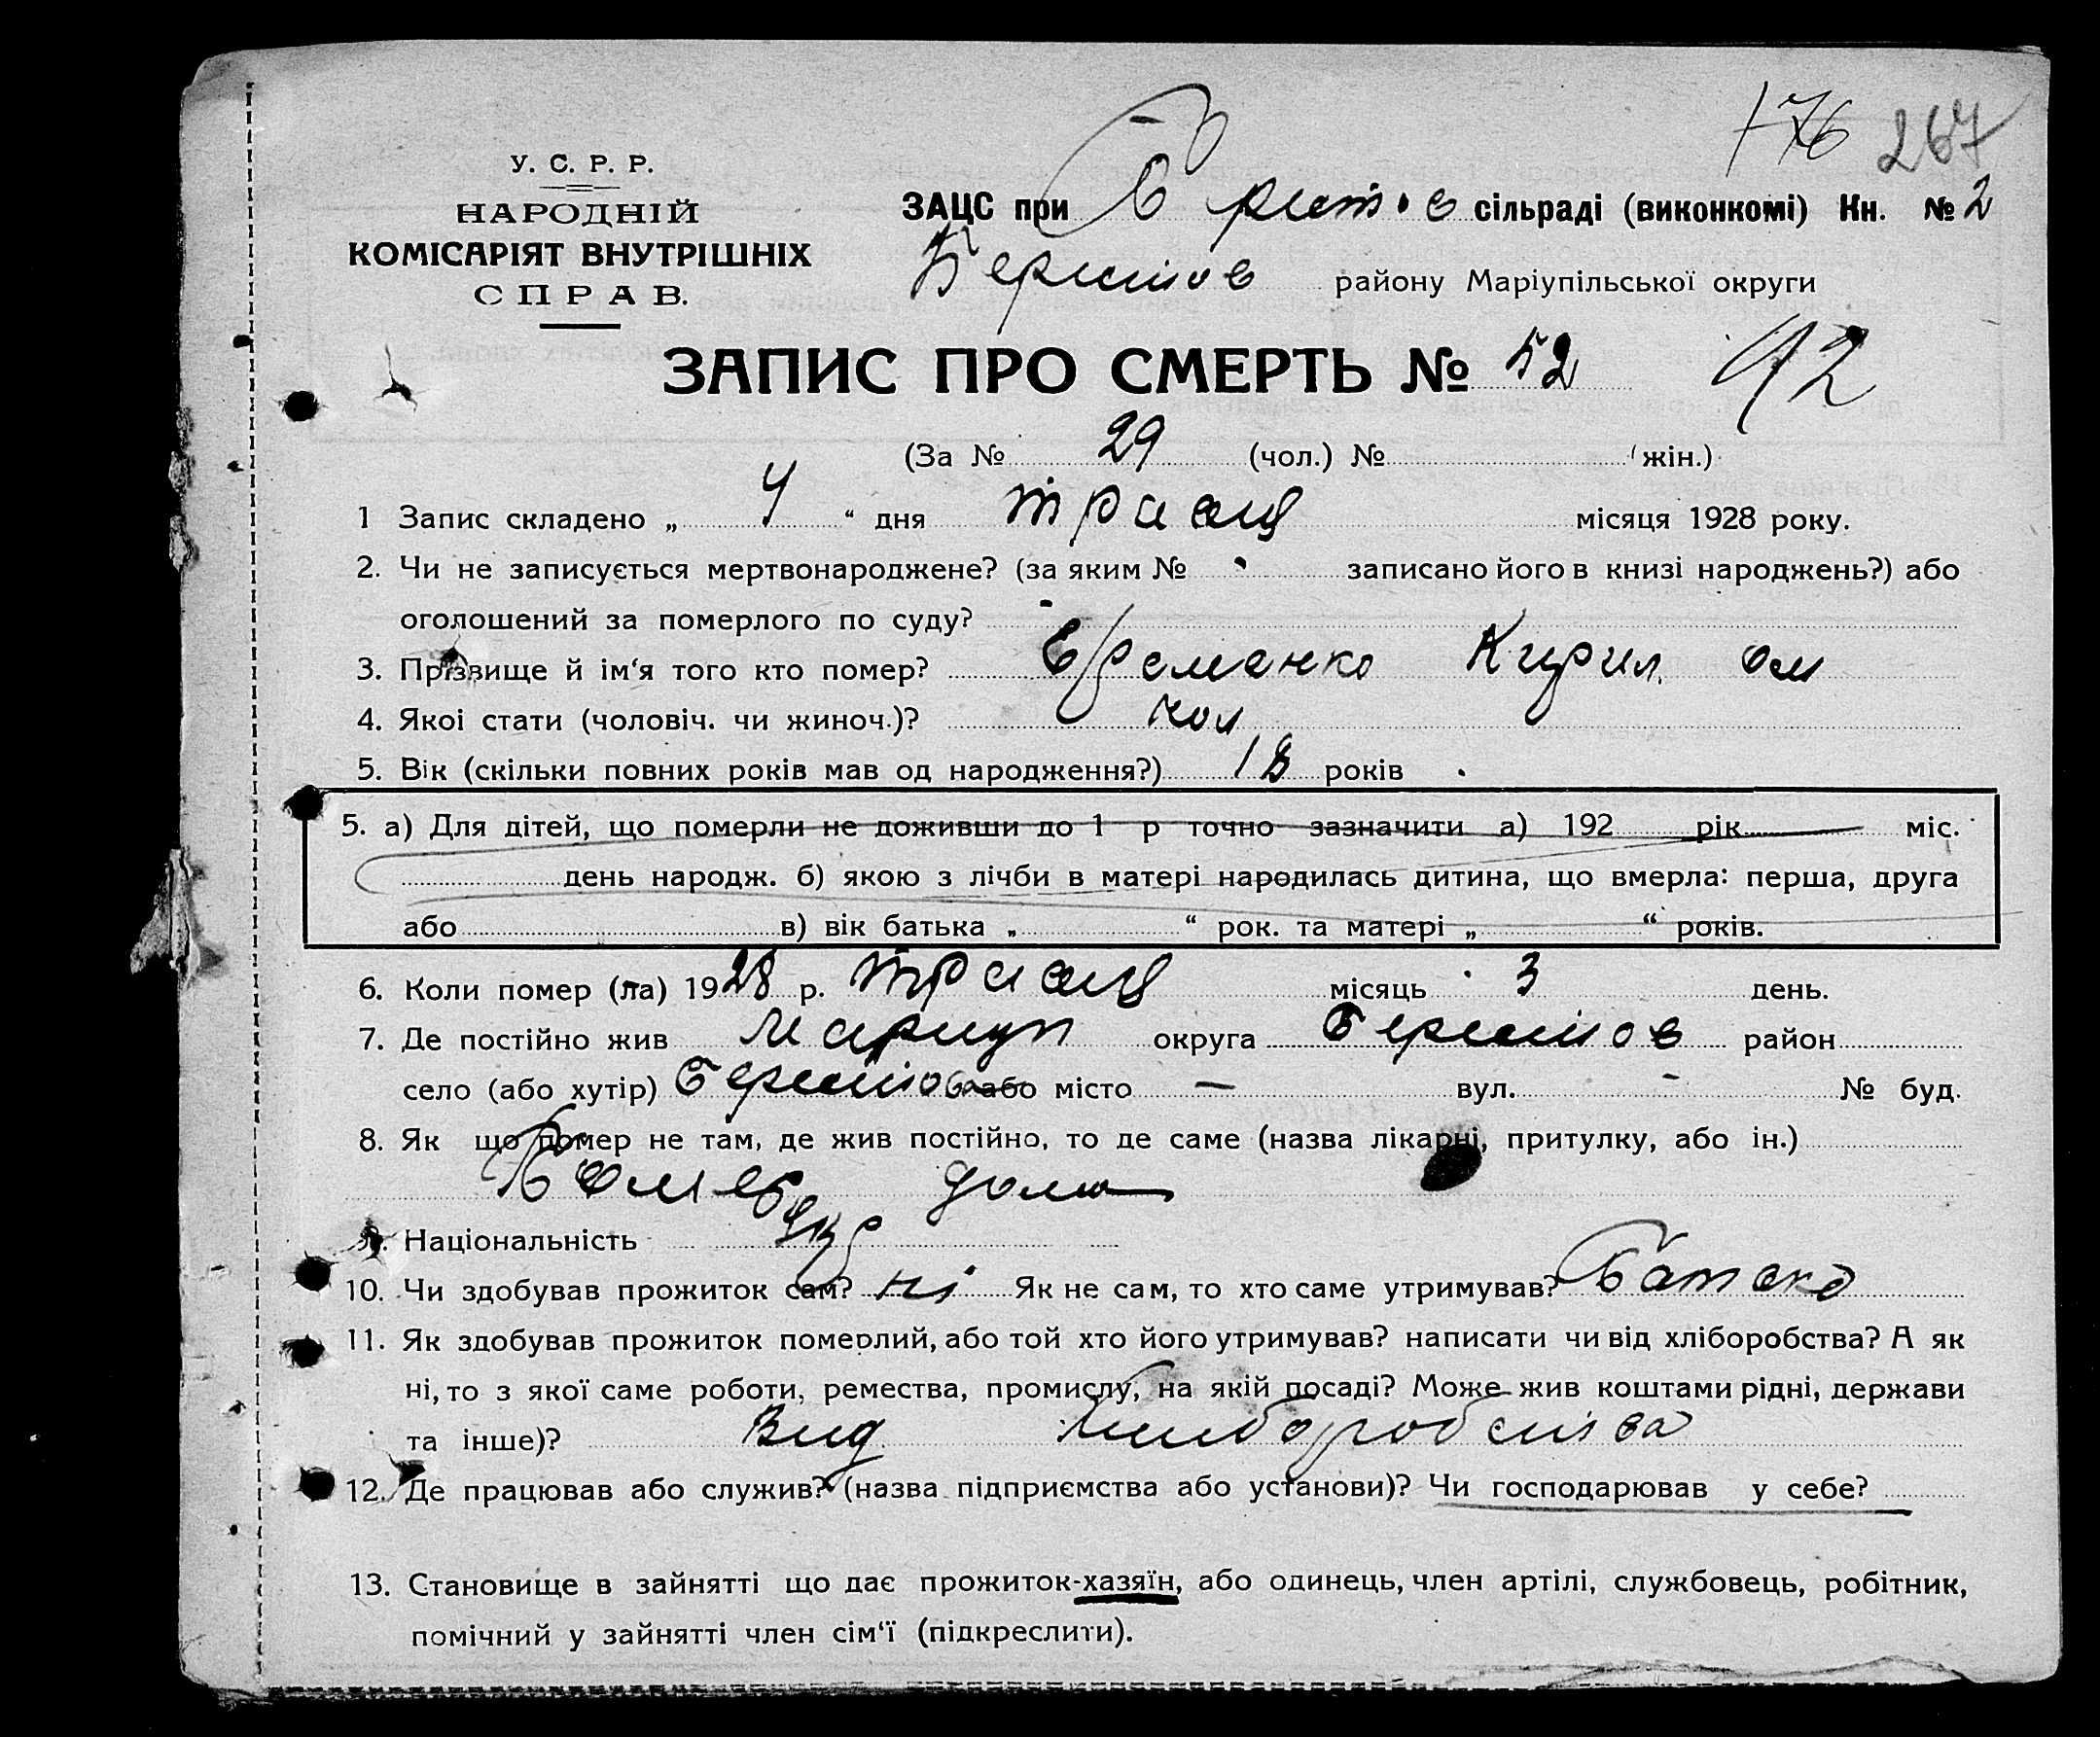 176 267
У. С. Р. Р.
НАРОДНІЙ
КОМІСАРІЯТ ВНУТРІШНІХ
СПРАВ.
ЗАЦС при сільраді (виконкомі) Кн. № 2
Берестов району Маріупільської округи
ЗАПИС ПРО СМЕРТЬ № 52 92
(За № 29 (чол.) № жін.)
1 Запис складено „ 4 “ дня травц місяця 1928 року.
2. Чи не записується мертвонароджене? (за яким № записано його в книзі народжень?) або
оголошений за померлого по суду? -
3. Прізвище й ім‘я того кто помер? Еременко Кирил
4. Якоі стати (чоловіч. чи жиноч.)? чол
5. Вік (скільки повних років мав од народження?) 18 років
5. а) Для дітей, що померли не доживши до 1 р точно зазначити а) 192 рік міс.
день народж. б) якою з лічби в матері народилась дитина, що вмерла: перша, друга
або в) вік батька „ “ рок. та матері „ “ років.
6. Коли помер (ла) 1928 р. травц місяць 3 день.
7. Де постійно жив Мариуп округа Берестов район
село (або хутір) Берестов або місто — вул. - № буд.
8. Як що помер не там, де жив постійно, то де саме (назва лікарні, притулку, або ін.)
Помер дома
9. Національність Укр
10. Чи здобував прожиток сам? ні Як не сам, то хто саме утримував? Батько
11. Як здобував прожиток померлий, або той хто його утримував? написати чи від хліборобства? А як
ні, то з якої саме роботи, ремества, промислу, на якій посаді? Може жив коштами рідні, держави
та інше)? Вид хлиборобства
12. Де працював або служив? (назва підприємства або установи)? Чи господарював у себе?
13. Становище в зайнятті що дає прожиток-хазяїн, або одинець, член артілі, службовець, робітник,
помічний у зайнятті член сім‘ї (підкреслити).